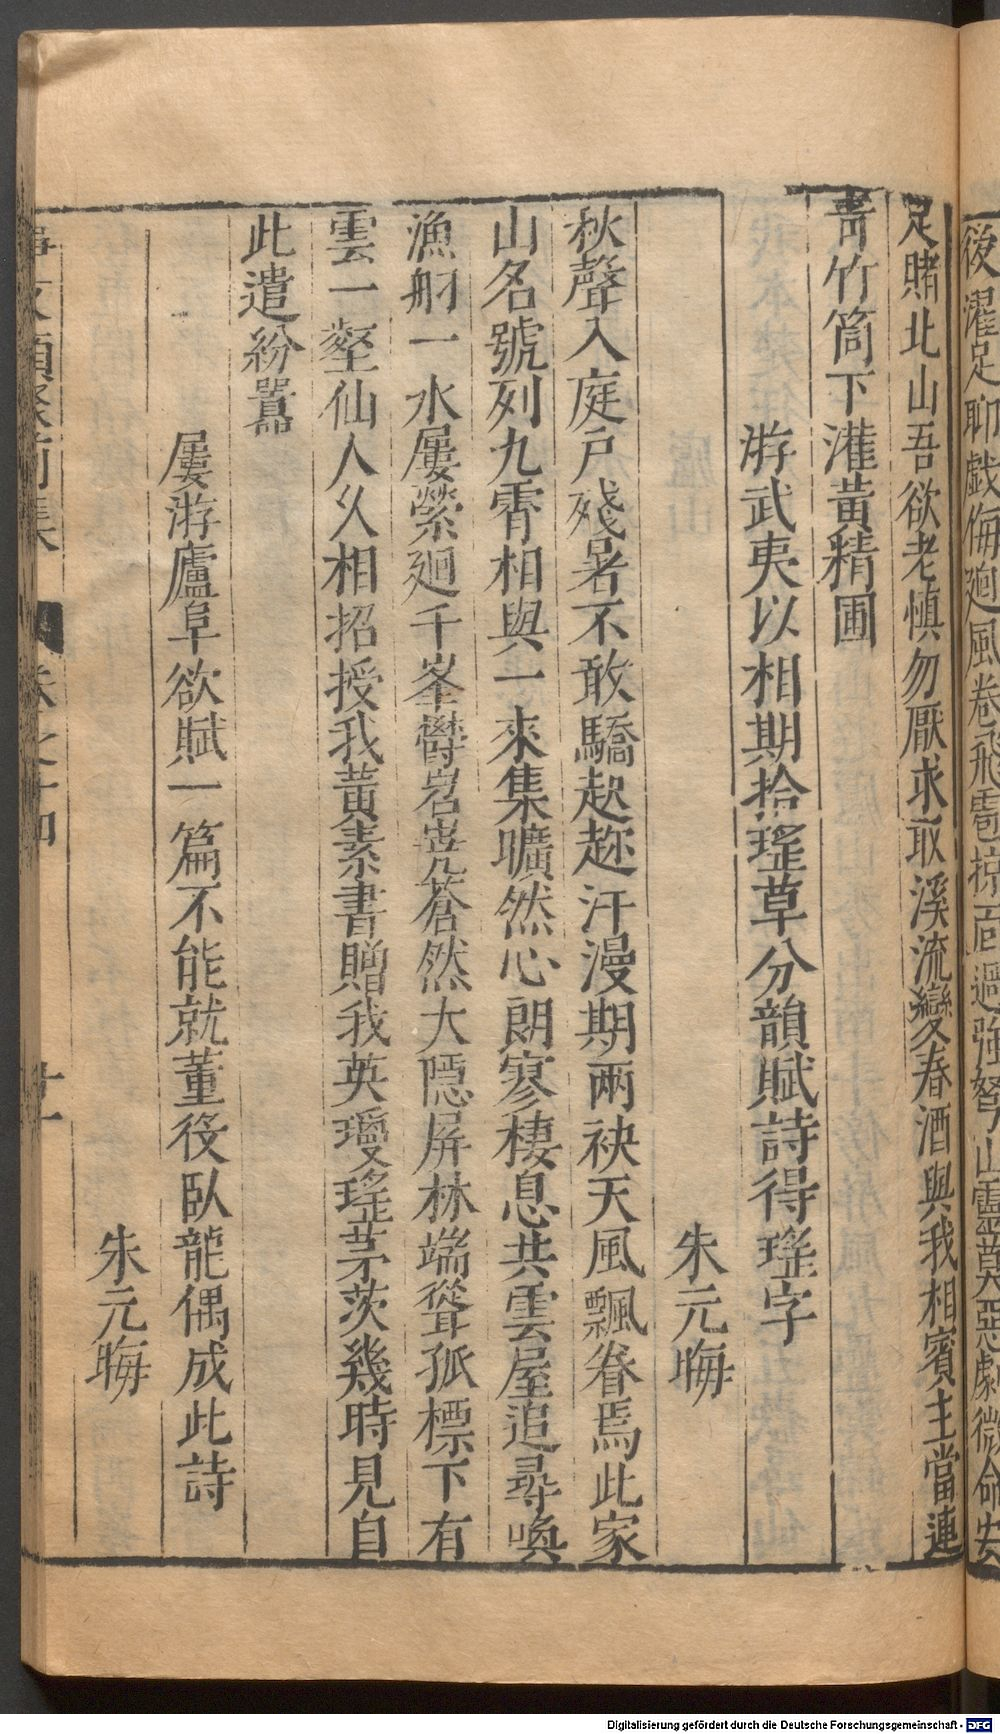 後濯足聊戲侮廻風卷飛雹掠面過強弩山靈莫惡劇微命安
足賭北山吾欲老慎勿厭求取溪流變春酒與我相賓主當連
青竹筒下灌黃精圃
游武夷以相期拾瑤草分韻賦詩得瑤字
朱元晦
秋聲入庭戶殘暑不敢驕起趂汗漫期兩袂天風飄眷焉此家
山名號列九霄相與一來集曠然心朗寥棲息共雲屋追尋喚
漁舠一水屢縈廻千峯鬱岧嶤蒼然大隱屏林端聳孤標下有
雲一壑仙人久相招授我黃素書贈我英瓊瑤茅茨幾時見自
此遣紛囂
屢游廬阜欲賦一篇不能就董役臥龍偶成此詩
朱元晦
事文類聚前集 卷之十四
Digitalisierung gefördert durch die Deutsche Forschungsgemeinschaft - DFG